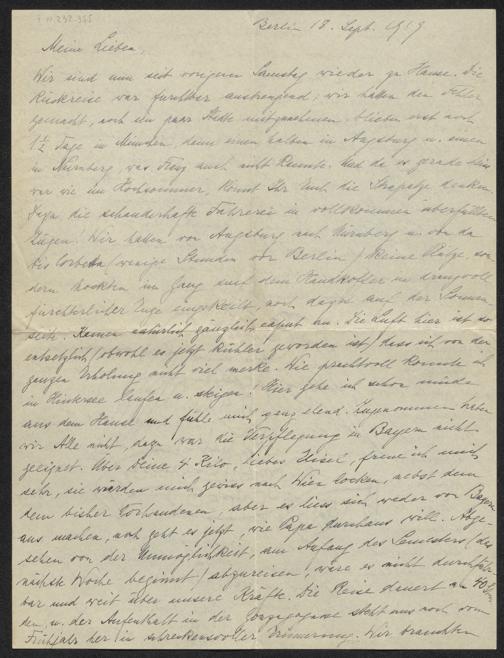 Berlin 18. Sept. 1919
Meine Lieben,
Wir sind nun seit vorigem Samstag wieder zu Hause. Die
Rückreise war furchtbar anstrengend; wir hatten den Fehler
gemacht, noch ein paar Städte mitzunehmen. blieben erst noch
1½ Tage in München, dann einen halben in Augsburg u. einen
in Nürnberg, was Franz auch nicht kannte. Und da es gerade heiss
war wie im Hochsommer, könnt Ihr Euch die Strapaze denken.
Dazu die schauderhafte Fahrerei in vollkommen überfüllten
Zügen! Wir hatten von Augsburg nach Nürnberg u. von da
bis Corbetha (wenige Stunden vor Berlin) keine Plätze, son-
dern hockten im Gang auf dem Handkoffer in drangvoll
fürchterlicher Enge eingekeilt, noch dazu auf der Sonnen-
seite. Kamen natürlich gänzlich caput an. Die Luft hier ist so
entsetzlich (obwohl es jetzt kühler geworden ist) dass ich von der
ganzen Erholung nicht viel merke. Wie prachtvoll konnte ich
im Hintersee laufen u. steigen! Hier gehe ich schon müde
aus dem Hause und fühle mich ganz elend. Zugenommen haben
wir Alle nicht, dazu war die Verpflegung in Bayern nicht
geeignet. Über Deine 4 Kilo, liebes freue ich mich
sehr, sie würden mich gewiss nach Wien locken, nebst dem
dem bisher aber es liess sich weder von Bayern
aus machen, noch geht es jetzt, wie Papa durchaus will. Abge-
sehen von der Unmöglichkeit, am Anfang des Semesters (das
nächste Woche beginnt) abzureisen, wäre es nicht durchführ-
bar und weit über unsere Kräfte. Die Reise dauert an 40 Stun-
den, u. der Aufenthalt in der steht uns noch vom
Frühjahr her in schreckensvoller Erinnerung. Wir brauchten